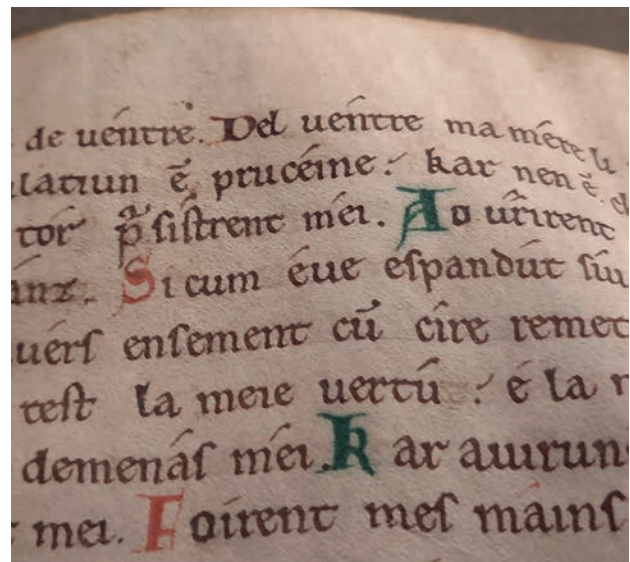 de uéntre. Del uentre ma mére li
latiun ē prucéine. kar nen ē.
tor p̄ sistrent méi. Ao uʳirent
ánz. Si cum éue espandút sui
uérs ensement cū cire remet
test la meie uertú : é la
demenás méi. Kar auirun
mei. Foirent mes máins